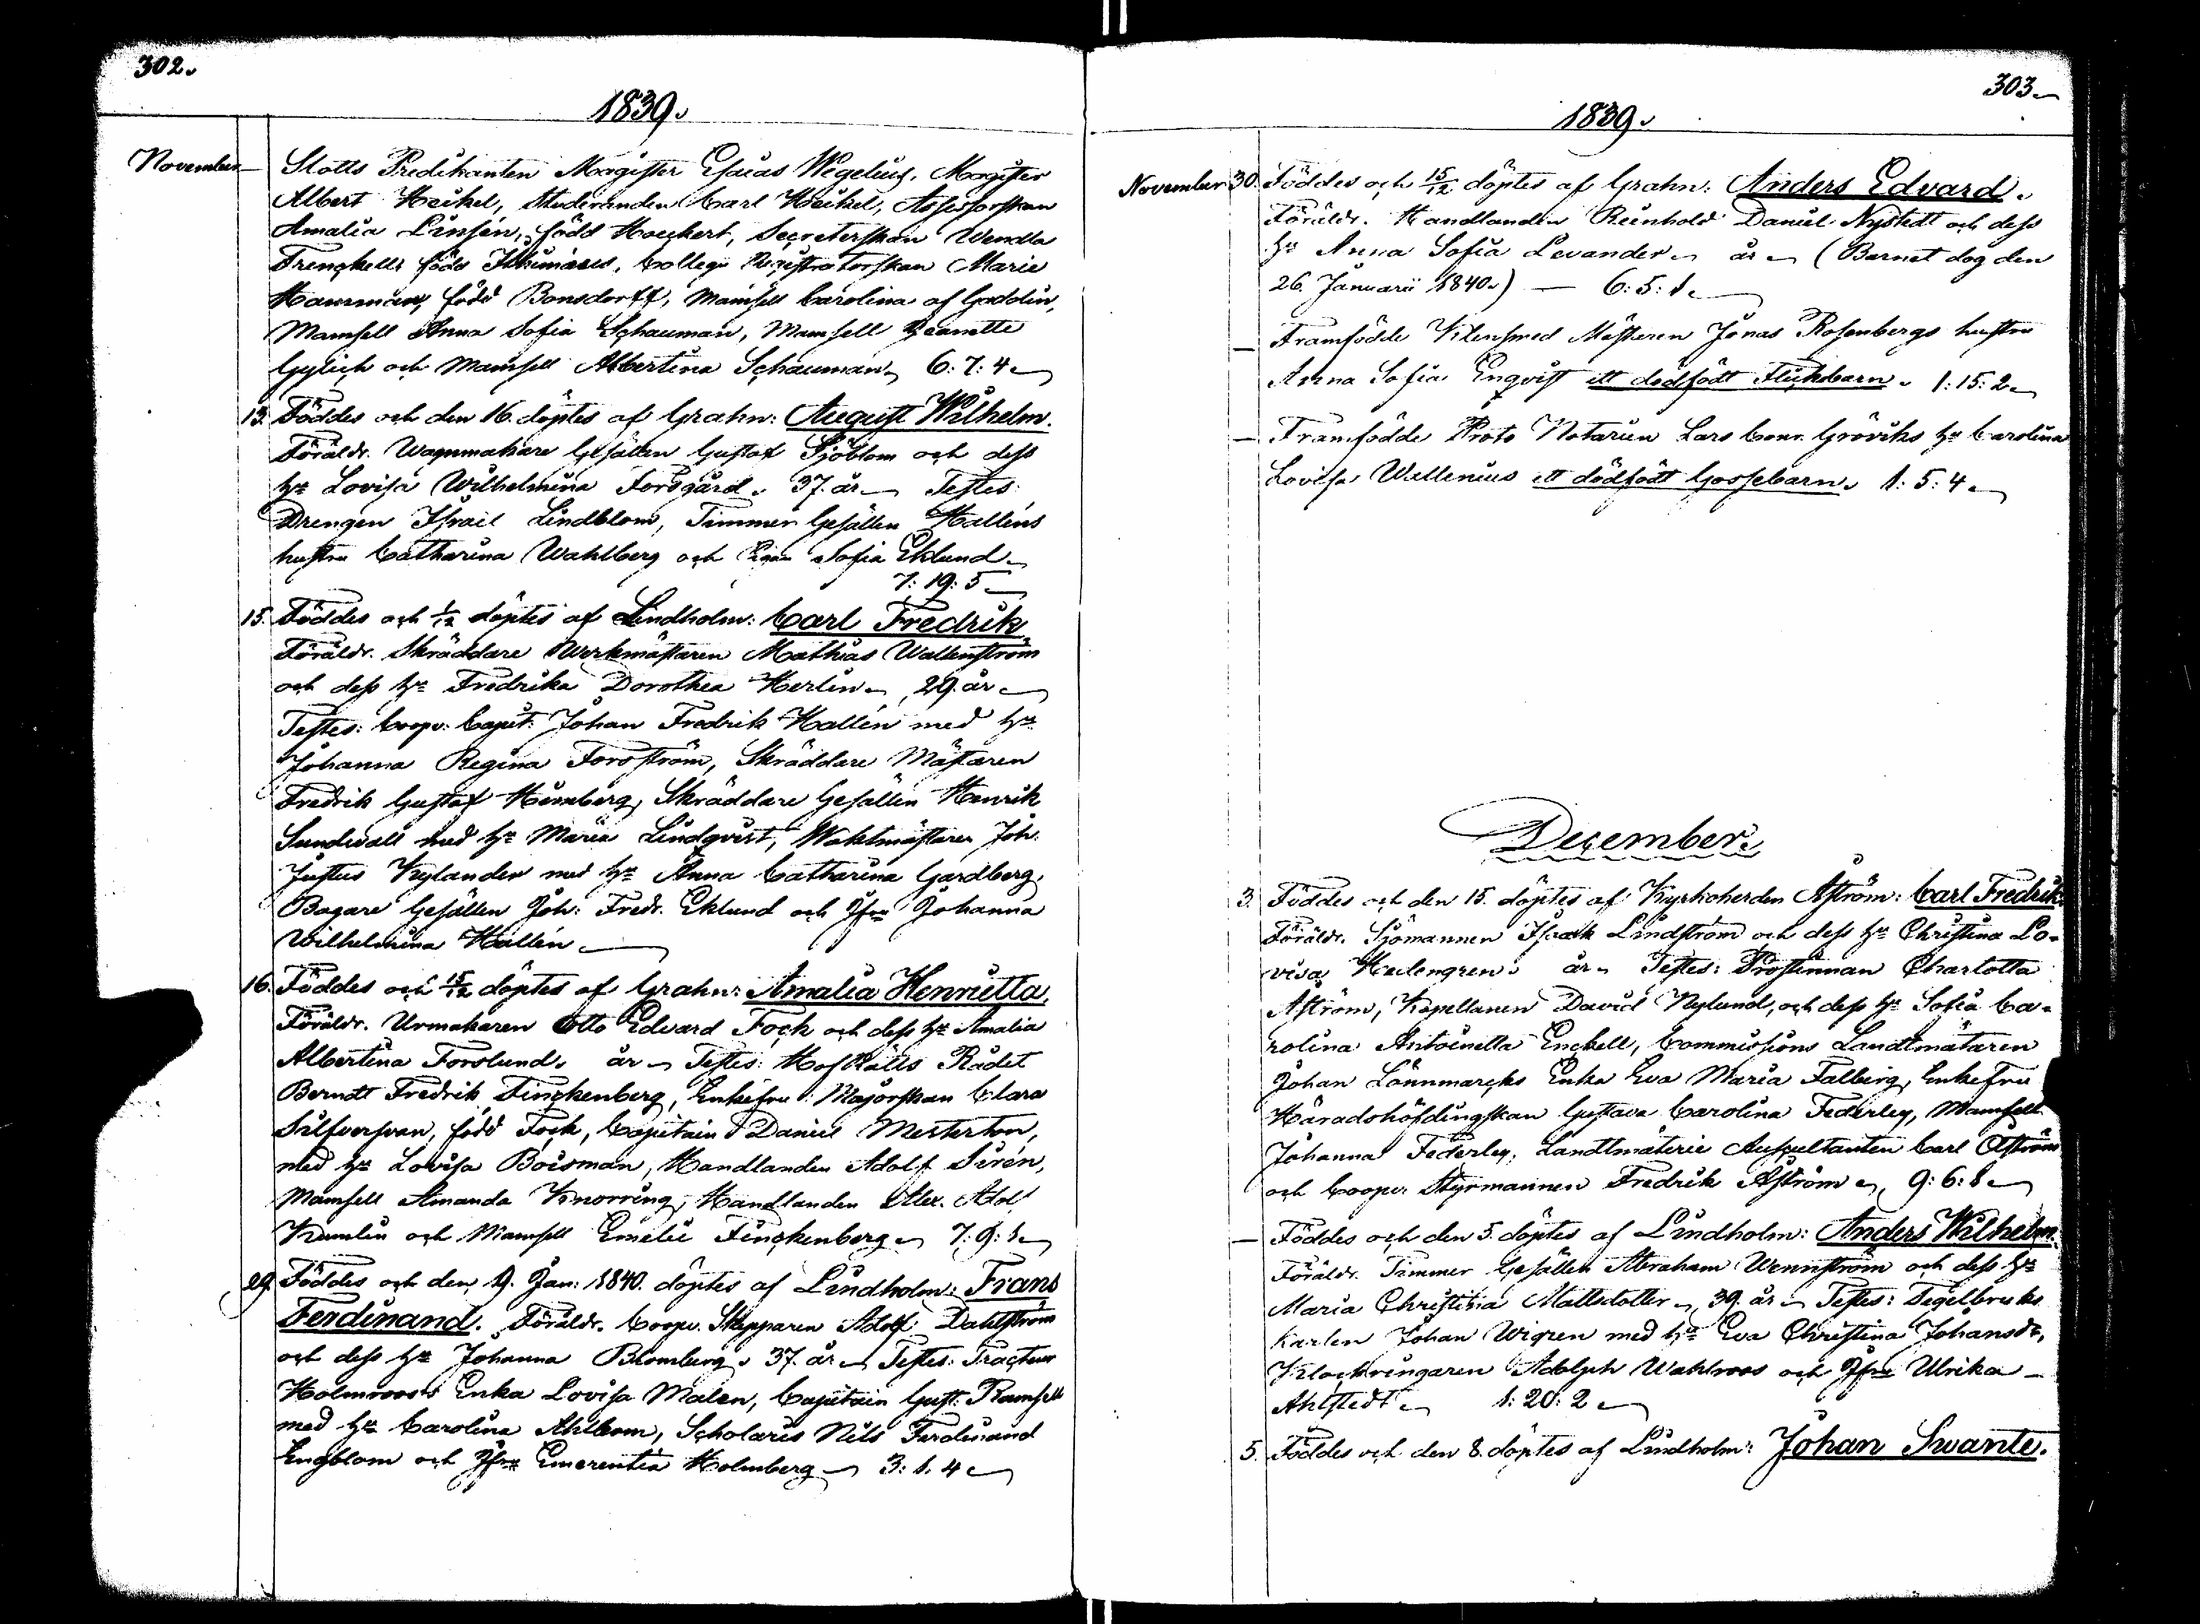 302.
1839.
November
Slotts Predikanten Magister Esaias Wegelius, Magister
Albert Heikel, Studeranden Carl Heikel, Assessorskan
Amalia Linsén, född Hoeckert, Secreterskan Wendla
Frenckell, född, Collegii Registratorskan Marie
född Bonsdorff, Mamsell Carolina af Gaddin,
Mamsell Anna Sofia Schauman, Mamsell Jeanette
Gylich och Mamsell Albertina Schauman. 6:7:4
13. Föddes och den 16. döptes af Grahn: August Wilhelm.
Föräldr. Wagnmakare Gesällen Gustaf Sjöblom och dess
hu Lovisa Wilhelmina Forsgård. 37. år Testes:
Drengen Israil Lindblom, Timmer Gesällen Halléns
hustru Catharina Wahlberg och Sofia Eklund
1:19:5
15. Föddes och 1/12 döptes af Lindholm: Carl Fredrik
Föräldr. Skräddare Werkmästaren Mathias Wallenström
och dess hu Fredrika Dorothea Herlin, 29. år
Testes: Coop. Capit: Johan Fredrik Hallén med hu
Johanna Regina Forsström, Skräddare Mästaren
Fredrik Gustaf Hinnberg, Skräddare Gesällen Henrik
Sundwall med hu Maria Lindqvist, Waktmästaren Joh.
Justus Kylander med hu Anna Catharina Gardberg,
Bagare Gesällen Joh: Fredr. Eklund och Jfru Johanna
Wilhelmina Hallén
16. Föddes och 15/12 döptes af Grahn: Amalia Henrietta.
Föräldr. Urmakaren Otto Edvard Fock och dess hu Amalia
Albertina Forslund. år Testes: HofRätts Rådet
Berndt Fredrik Finckenberg, Enkefru Majorskan Clara
Silfversvan, född Fock, Capitain Daniel Mesterton,
med hu Lovisa Boisman, Handlanden Adolf Sirén,
Mamsell Amanda Knorring, Handlanden Alex. Adol
Kumlin och Mamsell Emelie Finckenberg 7:9:1
29. Föddes och den 9. Jan: 1840. döptes af Lindholm: Frans
Ferdinand. Föräldr. Coop. Skepparen Adolf Dahlström
och dess hu Johanna Blomberg. 37. år Testes: Tracteur
Holmroos's Enka Lovisa Malen, Capitain Gust: Ramsell
med hu Carolina Ahlbom, Scholaris Nils Ferdinand
Engblom och Jfru Emerentia Holmberg 3:1:4
303.
1839.
November 30. Föddes och 15/12 döptes af Grahn: Anders Edvard.
Föräldr. Handlanden Reinhold Daniel Nystedt och dess
hu Anna Sofia Levander år (Barnet dog den
26. Januarii 1840.) — 6:5:1.
— Framfödde Klensmed Mästaren Jonas Rosenbergs hustru
Anna Sofia Enqvist ett dödfödt Flickebarn. 1:15:2
— Framfödde Proto Notarien Lars Conr. Gröviks hu Carolina
Lovisa Wallenius ett dödfödt Gossebarn. 1:5:4
December.
3. Föddes och den 15. döptes af Kyrkoherden Åström: Carl Fredrik.
Föräldr. Sjömannen Isaak Lindström och dess hu Christina Lo-
visa Hedengren. år Testes: Prostinnan Charlotta
Åström, Kapellanen David Nylund, och dess hu Sofia Ca-
rolina Antoinetta Enckell, Commissions Landtmätaren
Johan Lönnmarcks Enka Eva Maria Falberg, Enkefru
Häradshöfdingskan Gustava Carolina Federley, Mamsell
Johanna Federley, Landtmäterie Auscultanten Carl Åström
och Coop. Styrmannen Fredrik Åström 9:6:8
— Föddes och den 5. döptes af Lindholm: Anders Wilhelm.
Föräldr. Timmer Gesällen Abraham Wennström och dess hu
Maria Christina Mattsdotter, 39. år Testes: Tegelbruks
Karlen Johan Wigren med hu Eva Christina Johansdr,
Klockringaren Adolph Wahlroos och Jfru Ulrika
Ahlstedt 1:20:2
5. Föddes och den 8. döptes af Lindholm: Johan Swante.